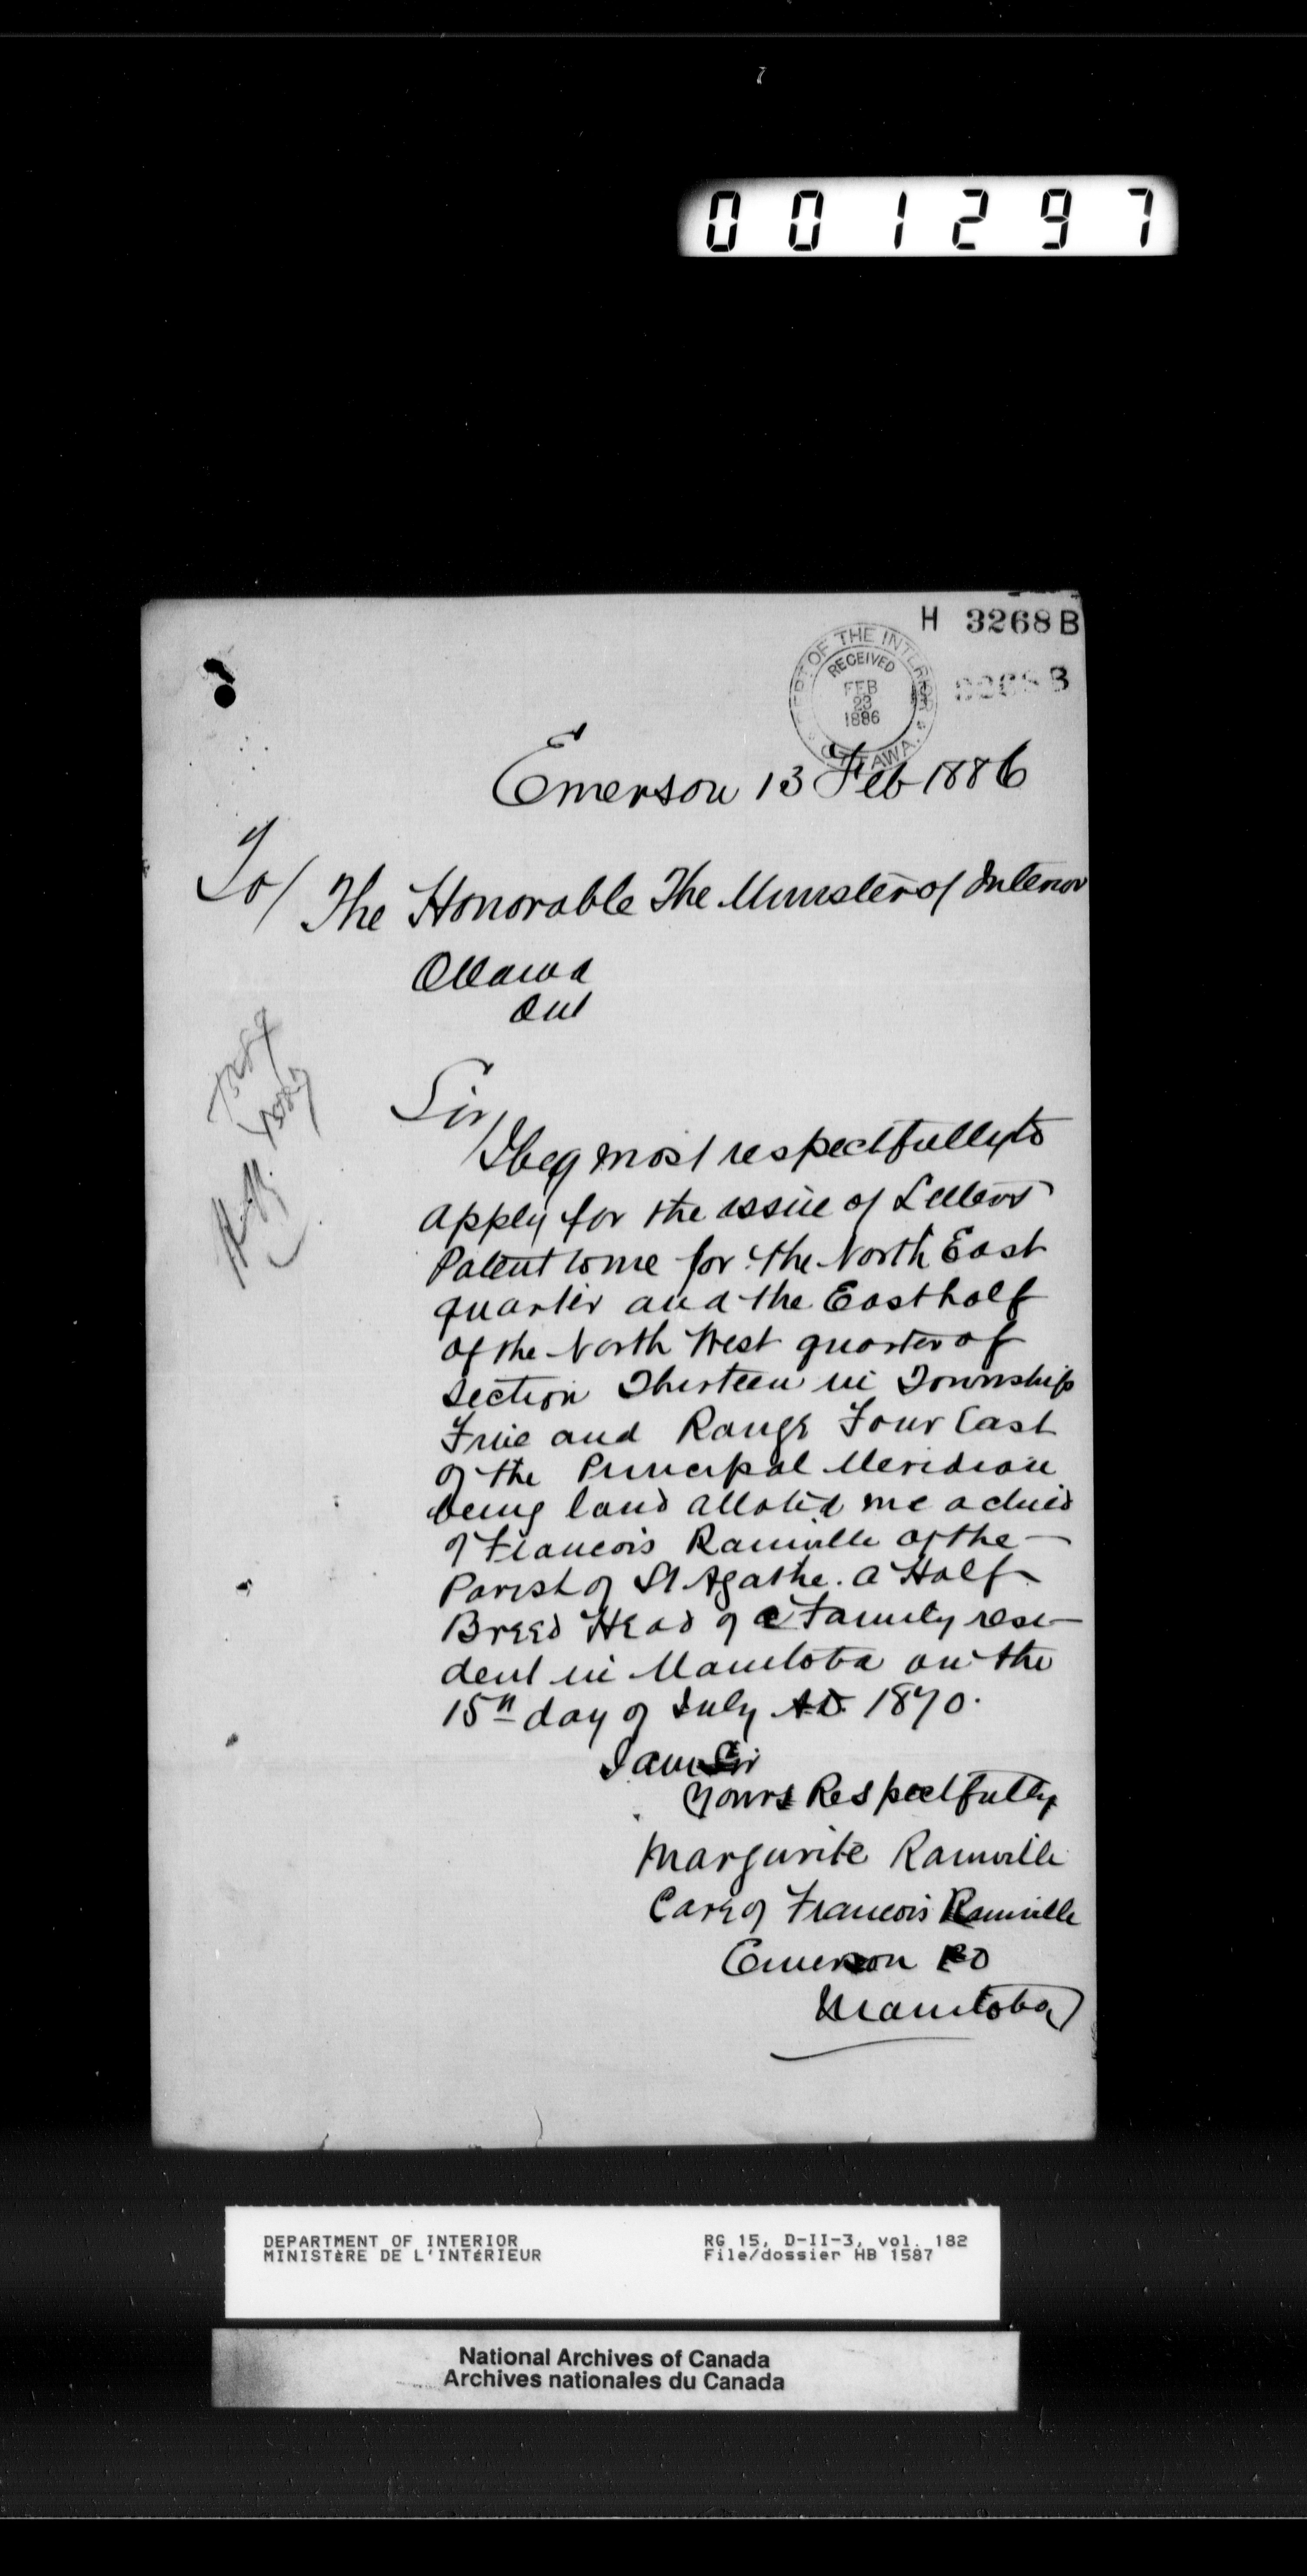 001297
H 3268 B
3268 B
DEPT OF THE INTERIOR
RECEIVED
FEB
23
1886
OTTAWA.
Emerson 13 Feb 1886
To/ The Honorable The Minister of Interior
Ottawa
Ont
Sir/
I beg most respectfully to
apply for the issue of Letters
Patent to me for the North East
quarter and the East half
of the North West quarter of
Section Thirteen in Township
Five and Range Four East
of the Principal Meridian
being land alloted me a child
of Francois Rainville of the
Parish of St Agathe. a Half
Breed Head of a Family resi-
dent in Manitoba on the
15th day of July AD 1870.
I am Sir
Yours Respectfully
Margurite Rainville
Care of Francois Rainville
Emerson PO
Manitoba
DEPARTMENT OF INTERIOR
MINISTÈRE DE L'INTÉRIEUR
RG 15, D-II-3, vol. 182
File/dossier HB 1587
National Archives of Canada
Archives nationales du Canada